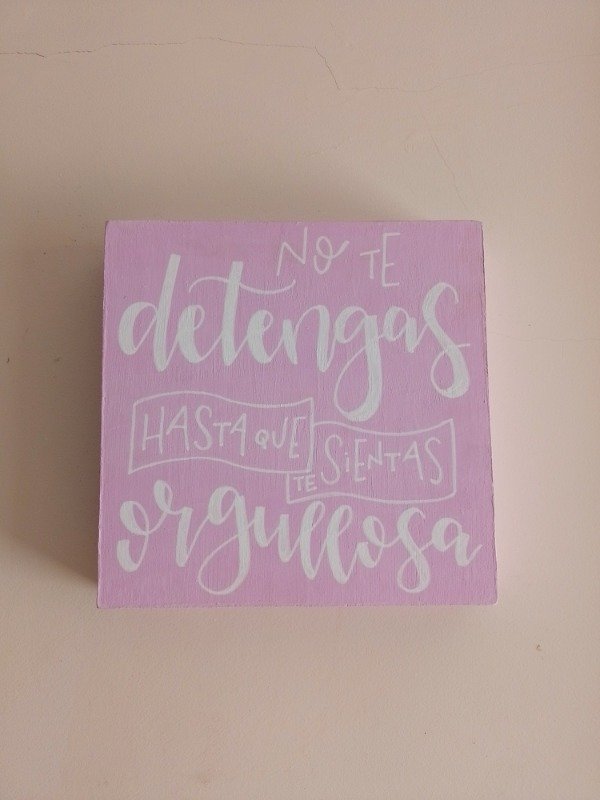 NO TE
detengas
HASTA QUE
TE SiENTAS
orgullosa